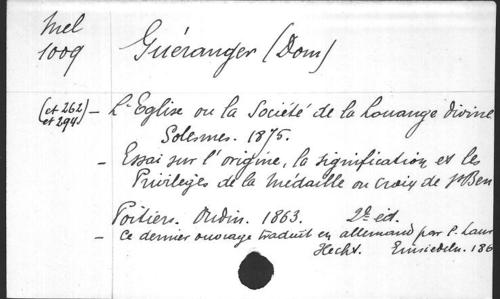 Mel
1009
Guéranger (Dom)
(et 262
et 294)
- L'Eglise ou la Société de la Louange divine
Solesmes. 1875.
- Essai sur l'origine, la signification et les
Privilèges de la Médaille ou croix de St Ben
Poitiers. Oudin. 1863. 2e éd.
- Ce dernier ouvrage traduit en allemand par P. Laur
Hecht. Einsiedeln. 186